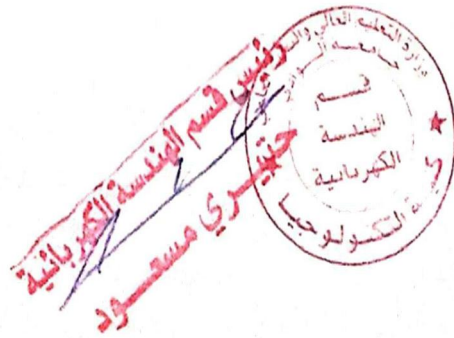 رئيس قسم الهندسة الكهربائية
حنيري مسعود
وزارة التعليم العالي
جامعة الوادي
قسم
الهندسة
الكهربائية
كلية التكنولوجيا